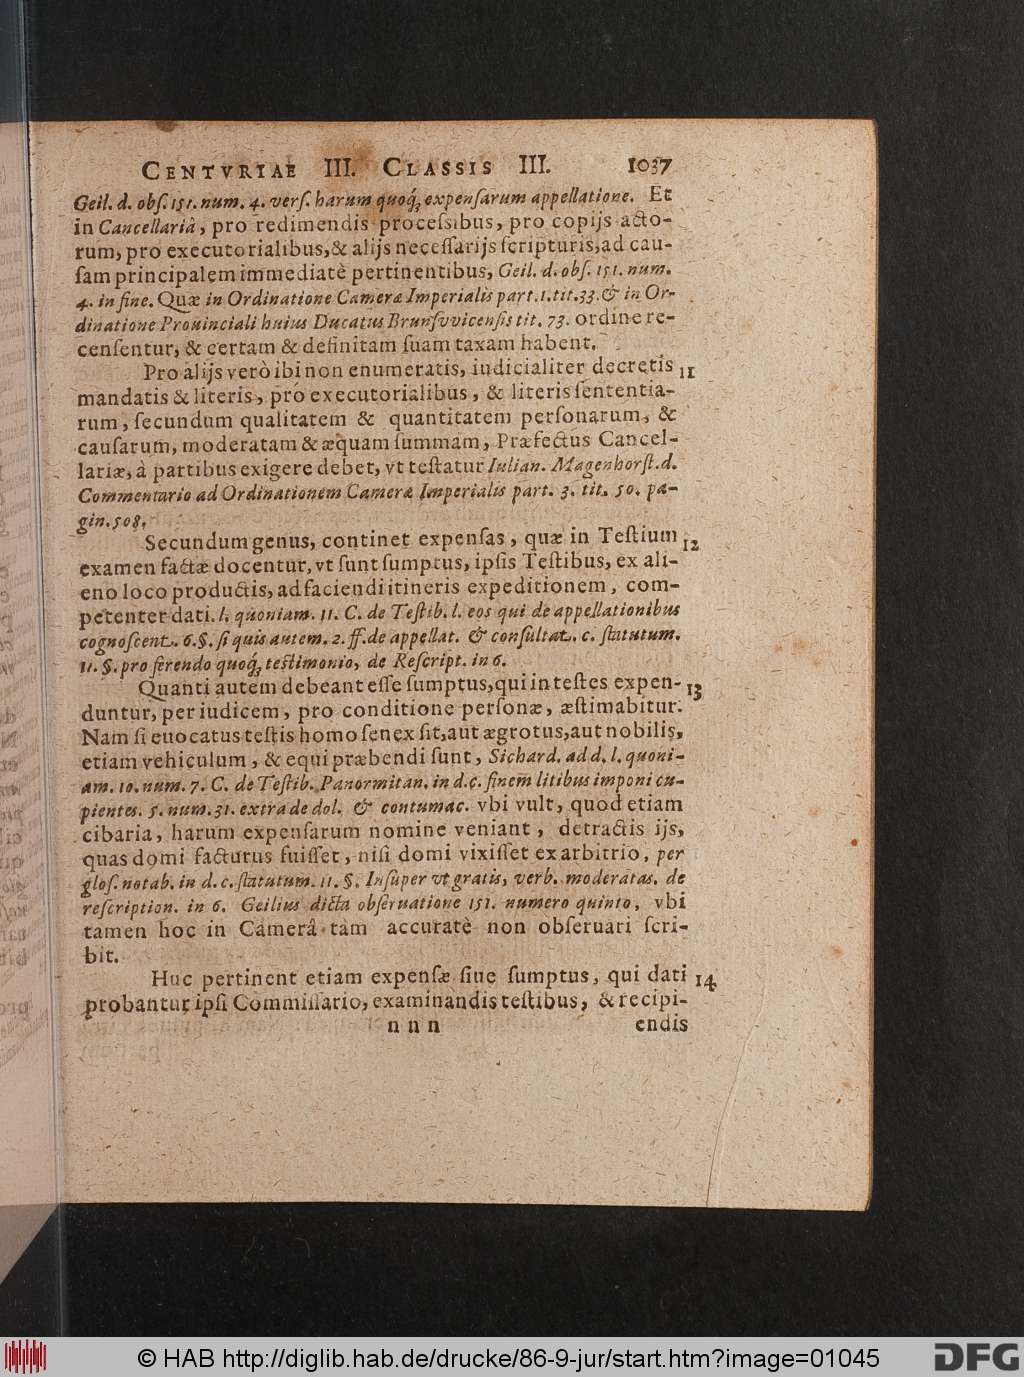 CENTVRIAE III. CLASSIS III. 1037
Geil. d. obſ. 151. num. 4. verſ. harum quoq́; expenſarum appellatione. Et
in Cancellariâ, pro redimendis proceſsibus, pro copijs acto-
rum, pro executorialibus, & alijs neceſſarijs ſcripturis, ad cau-
ſam principalem immediatè pertinentibus, Geil. d. obſ. 151. num.
4. in fine. Quæ in Ordinatione Cameræ Imperialis part. 1. tit. 33. & in Or-
dinatione Prouinciali huius Ducatus Brunſvvicenſis tit. 73. ordine re-
cenſentur, & certam & definitam ſuam taxam habent.
Pro alijs verò ibi non enumeratis, iudicialiter decretis 11
mandatis & literis, pro executorialibus, & literis ſententia-
rum, ſecundum qualitatem & quantitatem perſonarum, &
cauſarum, moderatam & æquam ſummam, Præfectus Cancel-
lariæ, à partibus exigere debet, vt teſtatur Iulian. Magenhorſt. d.
Commentario ad Ordinationem Cameræ Imperialis part. 3. tit. 50. pa-
gin. 508.
Secundum genus, continet expenſas, quæ in Teſtium 12
examen factæ docentur, vt ſunt ſumptus, ipſis Teſtibus, ex ali-
eno loco productis, ad faciendi itineris expeditionem, com-
petenter dati. l. quoniam. 11. C. de Teſtib. l. eos qui de appellationibus
cognoſcent. 6. §. ſi quis autem. 2. ff. de appellat. & conſultat. c. ſtatutum.
11. §. pro ferendo quoq́; teſtimonio, de Reſcript. in 6.
Quanti autem debeant eſſe ſumptus, qui in teſtes expen- 13
duntur, per iudicem, pro conditione perſonæ, æſtimabitur.
Nam ſi euocatus teſtis homo ſenex ſit, aut ægrotus, aut nobilis,
etiam vehiculum, & equi præbendi ſunt, Sichard. ad d. l. quoni-
am. 10. num. 7. C. de Teſtib. Panormitan. in d. c. finem litibus imponi cu-
pientes. 5. num. 31. extra de dol. & contumac. vbi vult, quod etiam
cibaria, harum expenſarum nomine veniant, detractis ijs,
quas domi facturus fuiſſet, niſi domi vixiſſet ex arbitrio, per
gloſ. notab. in d. c. ſtatutum. 11. §. Inſuper vt gratis, verb. moderatas. de
reſcription. in 6. Geilius dicta obſeruatione 151. numero quinto, vbi
tamen hoc in Camerâ tam accuratè non obſeruari ſcri-
bit.
Huc pertinent etiam expenſæ ſiue ſumptus, qui dati 14
probantur ipſi Commiſſario, examinandis teſtibus, & recipi-
nnn endis
© HAB http://diglib.hab.de/drucke/86-9-jur/start.htm?image=01045
DFG